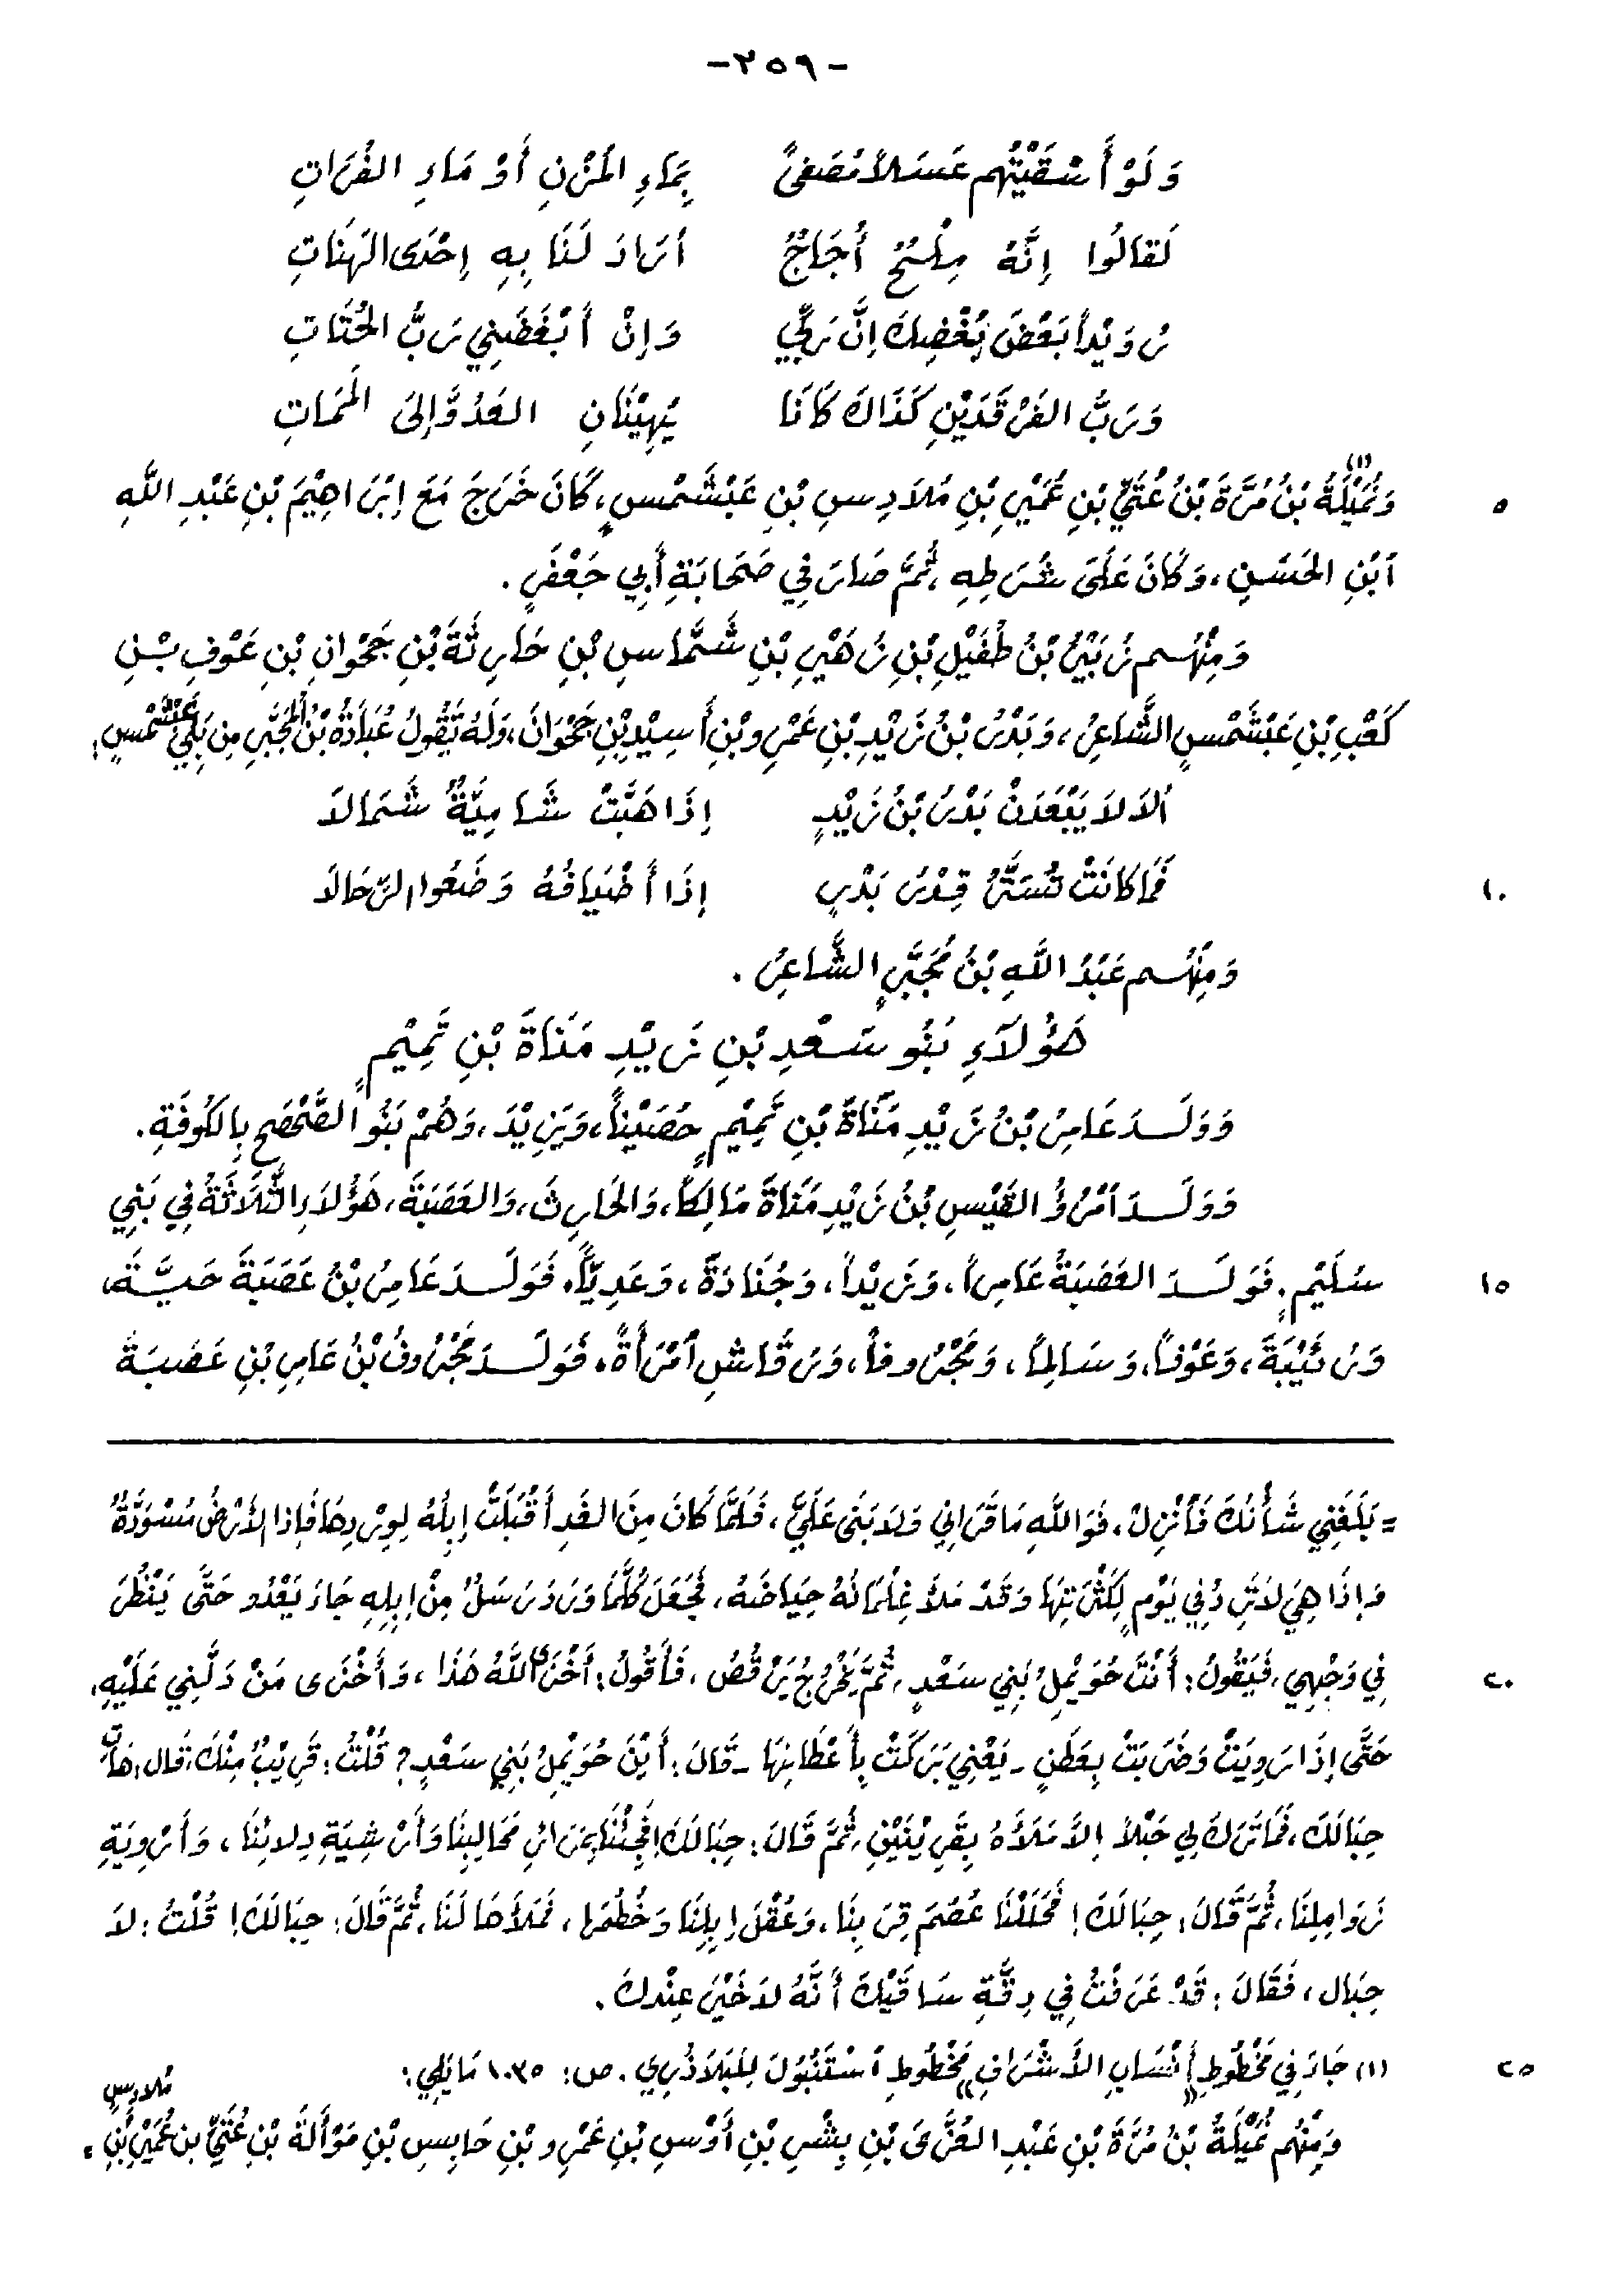 -٢٥٩-
وَلَوْ أَسْقَيْتُهُم عَسَلاً مُصَفىً بِمَاءِ المُزْنِ أَوْ مَاءِ الفُرَاتِ
لَقالُوا إِنَّهُ مِلْحٌ أُجَاجٌ أَرَادَ لَنَا بِهِ إِحْدَى الهَنَاتِ
رُوَيْداً بَعْضَ بُغْضِكَ إِنَّ رَبِّي وَإِنْ أَبْغَضَنِي رَبُّ الحُتَاتِ
وَرَبُّ الفَرْقَدَيْنِ كَذَاكَ كَانَا يُهِيْنَانِ العَدُوَّ إِلَى المَمَاتِ
٥ وَنُمَيْلَةُ (١) بْنُ مُرَّةَ بْنُ عُتَيِّ بْنِ عُمَيْرِ بْنِ مُلاَدِسِ بْنِ عَبْشَمْسٍ، كَانَ خَرَجَ مَعَ إِبْرَاهِيْمَ بْنِ عَبْدِ اللَّهِ
ٱبْنِ الحَسَنِ، وَكَانَ عَلَى شُرَطِهِ، ثُمَّ صَارَ فِي صَحَابَةِ أَبِي جَعْفَرٍ.
وَمِنْهُم زُبَيْرُ بْنُ طُفَيْلِ بْنِ زُهَيْرِ بْنِ شَمَّاسِ بْنِ حَارِثَةَ بْنِ جَحْوَانِ بْنِ عَوْفِ بْنِ
كَعْبِ بْنِ عَبْشَمْسٍ الشَّاعِرُ، وَبَدْرُ بْنُ زَيْدِ بْنِ عَمْرِو بْنِ أَسِيْدِ بْنِ جَحْوَانَ، وَلَهُ تَقُولُ عُبَادَةُ بْنُ المُجَبَّرِ مِن بَنِي عَبْشَمْسٍ:
أَلاَ لاَ يَبْعَدَنْ بَدْرُ بْنُ زَيْدٍ إِذَا هَبَّتْ شَامِيَّةٌ شَمَالاَ
١٠ فَمَا كانَتْ تُسَتَّرُ قِدْرُ بَدْرٍ إِذَا أَضْيَافُهُ وَضَعُوا الرِّحَالاَ
وَمِنْهُم عَبْدُ اللَّهِ بْنُ مُجَبَّرٍ الشَّاعِرُ.
هَؤُلاَءِ بَنُو سَعْدِ بْنِ زَيْدِ مَنَاةَ بْنِ تَمِيْمٍ
وَوَلَدَ عَامِرُ بْنُ زَيْدِ مَنَاةَ بْنِ تَمِيْمٍ حُصَيْناً، وَيَزِيْدَ، وَهُمْ بَنُو الصَّحْصَحِ بِالكُوفَةِ.
وَوَلَدَ ٱمْرُؤُ القَيْسِ بْنُ زَيْدِ مَنَاةَ مَالِكاً، وَالحَارِثَ، وَالعَصَبَةَ، هَؤُلاَءِ الثَّلاَثَةُ فِي بَنِي
١٥ سُلَيْمٍ. فَوَلَدَ العَصَبَةُ عَامِراً، وَزَيْداً، وَجُنَادَةَ، وَعَدِيَّاً، فَوَلَدَ عَامِرُ بْنُ عَصَبَةَ حَيَّةَ،
وَرُئَيْبَةَ، وَعَوْفاً، وَسَالِماً، وَمَجْرُوفاً، وَرَقَاشِ ٱمْرَأَةٌ، فَوَلَدَ مَجْرُوفُ بْنُ عَامِرِ بْنِ عَصَبَةَ
= بَلَغَنِي شَأْنُكَ فَٱنْزِلْ، فَوَاللَّهِ مَا قَرَانِي وَلاَ بَنَى عَلَيَّ، فَلَمَّا كَانَ مِنَ الغَدِ أَقْبَلَتْ إِبِلُهُ لِوِرْدِهَا فَإِذَا الأَرْضُ مُسْوَدَّةٌ
وَإِذَا هِيَ لاَ تَرِدُ فِي يَوْمٍ لِكَثْرَتِهَا وَقَدْ مَلأَ غِلْمَانُهُ حِيَاضَهُ، فَجَعَلَ كُلَّمَا وَرَدَ رَسَلٌ مِنْ إِبِلِهِ جَاءَ يَعْدُو حَتَّى يَنْظُرَ
٢٠ فِي وَجْهِي، فَيَقُولُ: أَنْتَ حُوَيْمِلُ بَنِي سَعْدٍ، ثُمَّ يَخْرُجُ يَرْقُصُ، فَأَقُولُ: أَخْزَى اللَّهُ هَذَا، وَأَخْزَى مَنْ دَلَّنِي عَلَيْهِ،
حَتَّى إِذَا رَوِيَتْ وَضَرَبَتْ بِعَطَنٍ - يَعْنِي بَرَكَتْ بِأَعْطَانِهَا - قَالَ: أَيْنَ حُوَيْمِلُ بَنِي سَعْدٍ؟ قُلْتُ: قَرِيْبٌ مِنْكَ، قَال: هَاتِ
حِبَالَكَ، فَمَا تَرَكَ لِي حَبْلاً إِلاَّ مَلأَهُ بِقَرِيْنَيْنِ، ثُمَّ قَالَ: حِبَالَكَ! فَجِئْنَا بِمَرَائِرِ مَحَالِبِنَا وَأَرْشِيَةِ دِلائِنَا، وَأَرْوِيَةِ
زَوَامِلِنَا، ثُمَّ قَالَ: حِبَالَكَ! فَحَلَلْنَا عُصُمَ قِرَبِنَا، وَعُقْلَ إِبِلِنَا وَخُطُمَهَا، فَمَلأَهَا لَنَا، ثُمَّ قَالَ: حِبَالَكَ! قُلْتُ: لاَ
حِبَال، فَقَالَ: قَدْ عَرَفْتُ فِي دِقَّةِ سَاقَيْكَ أَنَّهُ لاَ خَيْرَ عِنْدكَ.
٢٥ (١) جَاءَ فِي مَخْطُوطِ «أَنْسَابِ الأَشْرَافِ» مَخْطُوطِ ٱسْتَنْبُولَ لِلبَلاَذُرِي. ص: ١٠٣٥ مَا يَلِي:
وَمِنْهُم نُمَيْلَةُ بْنُ مُرَّةَ بْنِ عَبْدِ العُزَّى بْنِ بِشْرِ بْنِ أَوْسِ بْنِ عَمْرِو بْنِ حَابِسِ بْنِ مَوْأَلَةَ بْنِ عُتَيِّ بن عُمَيْرِ بْنِ مُلادِسِ =